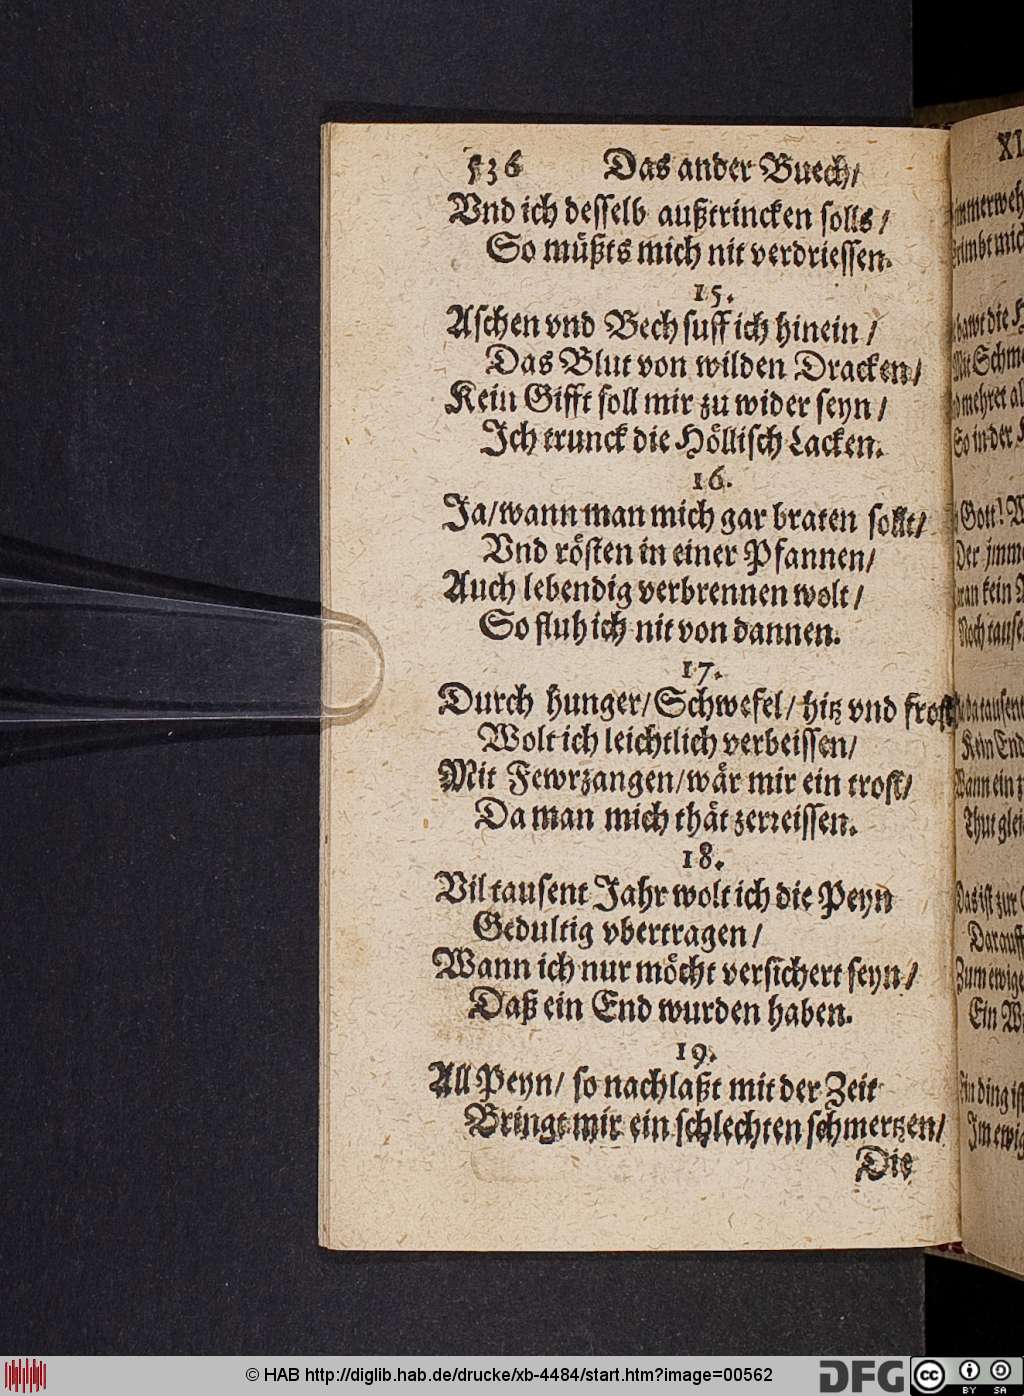 536 Das ander Buech/
Vnd ich desselb außtrincken solls/
So müßts mich nit verdriessen.
15.
Aschen vnd Bech suff ich hinein/
Das Blut von wilden Dracken/
Kein Gifft soll mir zu wider seyn/
Ich trunck die Höllisch Lacken.
16.
Ja/wann man mich gar braten sollt/
Vnd rösten in einer Pfannen/
Auch lebendig verbrennen wolt/
So fluh ich nit von dannen.
17.
Durch hunger/Schwefel/hitz vnd frost
Wolt ich leichtlich verbeissen/
Mit Fewrzangen/wär mir ein trost/
Da man mich thät zerreissen.
18.
Vil tausent Jahr wolt ich die Peyn
Gedultig vbertragen/
Wann ich nur möcht versichert seyn/
Daß ein End wurden haben.
19.
All Peyn/ so nachlaßt mit der Zeit
Bringt mir ein schlechten schmertzen/
Die
XI
Gott!
kein
Kein End
Wann ein
Thut
Das ist zur
Darauff
Ein
ding ist
© HAB http://diglib.hab.de/drucke/xb-4484/start.htm?image=00562
DFG
cc BY SA